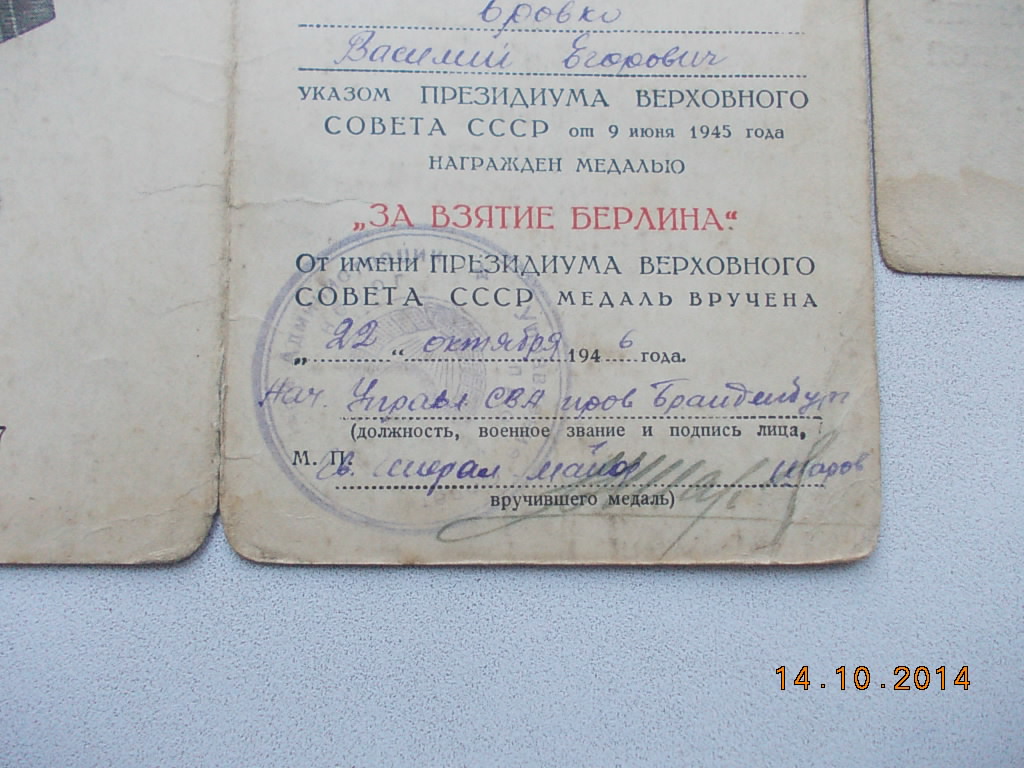 Бровко
Василий Егорович
УКАЗОМ ПРЕЗИДИУМА ВЕРХОВНОГО
СОВЕТА СССР от 9 июня 1945 года
НАГРАЖДЕН МЕДАЛЬЮ
„ЗА ВЗЯТИЕ БЕРЛИНА“
От имени ПРЕЗИДИУМА ВЕРХОВНОГО
СОВЕТА СССР МЕДАЛЬ ВРУЧЕНА
„22“ октября 1946 года.
Нач. Управл СВА пров Бранденбург
(должность, военное звание и подпись лица,
М. П. Гв. генерал майор Шаров
вручившего медаль)
7
14.10.2014